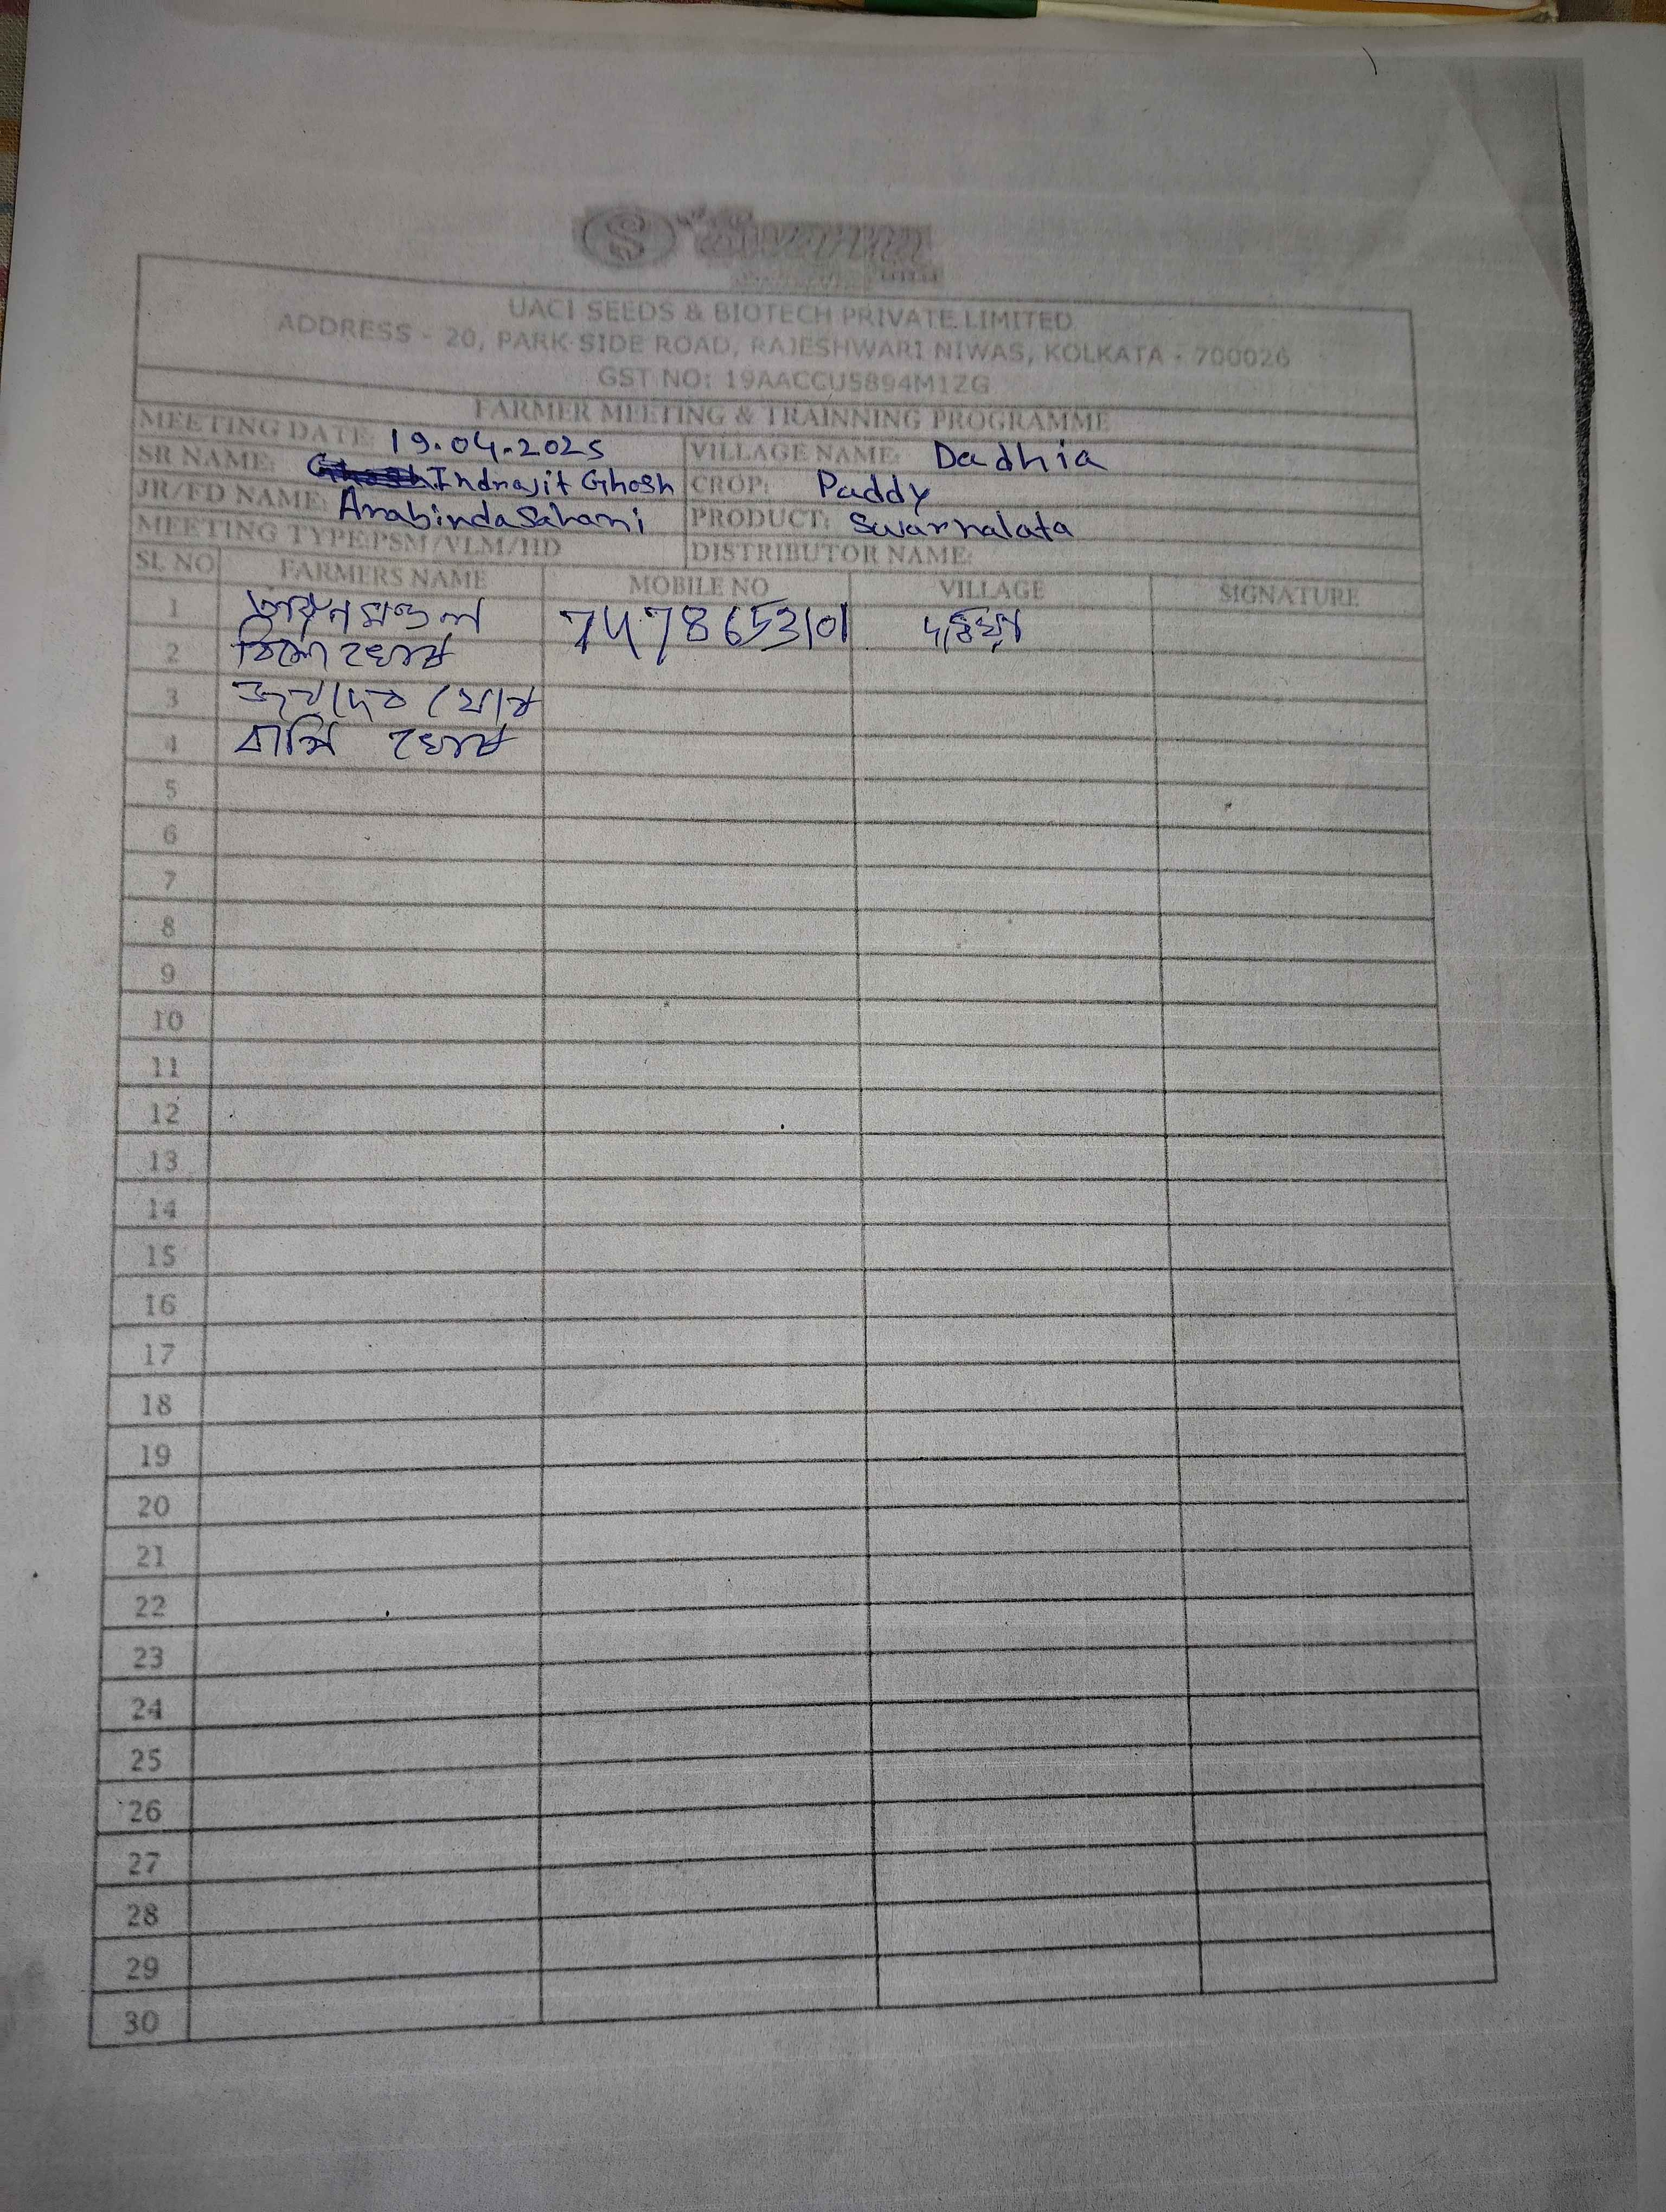 Swarna
UACI SEEDS & BIOTECH PRIVATE LIMITED
ADDRESS - 20, PARK SIDE ROAD, RAJESHWARI NIWAS, KOLKATA - 700026
GST NO: 19AACCU5894M1ZG
FARMER MEETING & TRAINNING PROGRAMME
MEETING DATE: 19.04.2025 VILLAGE NAME: Dadhia
SR NAME: Indrajit Ghosh CROP: Paddy
JR/FD NAME: Arabinda Sahani PRODUCT: Swarnalata
MEETING TYPE:PSM/VLM/HD DISTRIBUTOR NAME:
SL NO FARMERS NAME MOBILE NO VILLAGE SIGNATURE
1 মণ্ডল 7478653101
2 ঘোষ
3 জয়দেব ঘোষ
4 ঘোষ
5
6
7
8
9
10
11
12
13
14
15
16
17
18
19
20
21
22
23
24
25
26
27
28
29
30